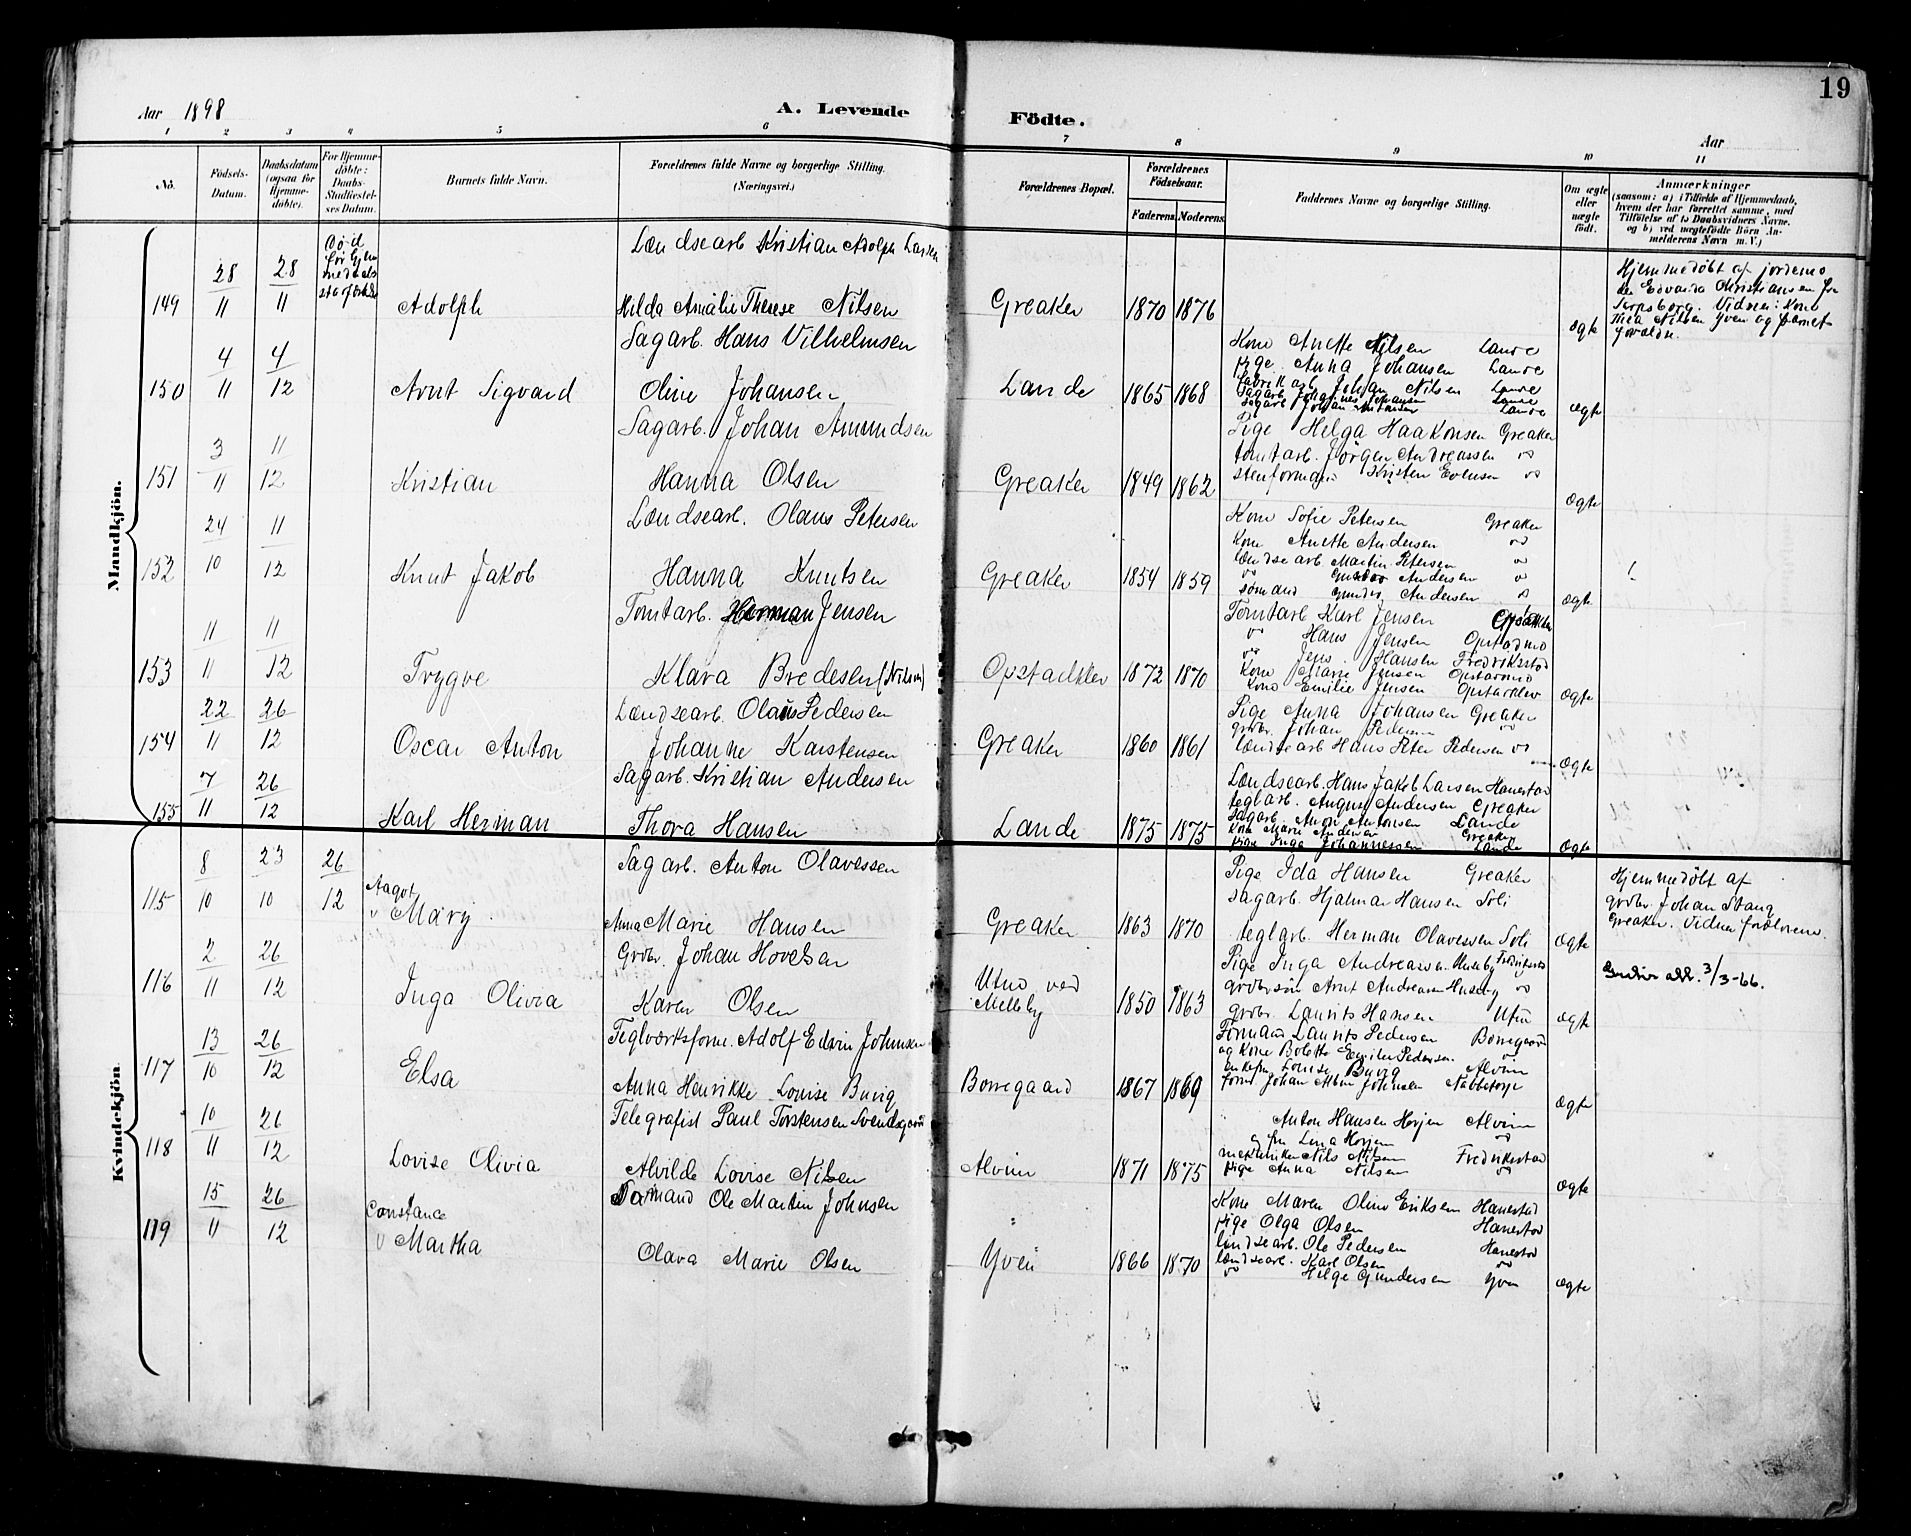 19
Aar 1898
A. Levende Födte.
Aar
1 2 3 4 5 6 7 8 9 10 11
No.
Födsels-Datum.
Daabsdatum (ogsaa for Hjemme-döbte).
For Hjemme-döbte: Daabs-Stadfæstel-ses Datum.
Barnets fulde Navn.
Forældrenes fulde Navne og borgerlige Stilling. (Næringsvei.)
Forældrenes Bopæl.
Forældrenes Födselsaar.
Faderens. Moderens.
Faddernes Navne og borgerlige Stilling.
Om ægte eller uægte födt.
Anmærkninger
(saasom: a) i Tilfælde af Hjemmedaab,
hvem der har forrettet samme, med
Tilföielse af to Daabsvidners Navne.
og b) ved uægtefödte Börn An-
melderens Navn m. V.)
Mandkjön.
149 28/11 28/11 Död
Adolph
Lændsearb Kristian Adolph Larsen
Hilda Amalie Therese Nilsen
Greaker 1870 1876
ægte
Hjemmedöbt af jordemo
der Edvarda Kristiansen fra
Sarpsborg. Vidner: Kone
Thea Nilsen Yven og barnets
forældre.
150 4/11 4/12
Arnt Sigvard
Sagarb. Hans Vilhelmsen
Oline Johansen
Lande 1865 1868
Kone Anette Nilsen Lande
pige Anna Johansen Lande
fabrikarb Johan Nilsen Lande
Sagarb Johannes Johansen Lande
Sagarb Johan Antonsen Lande
ægte
151 3/11 11/12
Kristian
Sagarb. Johan Amundsen
Hanna Olsen
Greaker 1849 1862
Pige Helga Haakonsen Greaker
tomtarb. Jörgen Andreassen do
stenformand Kristen Evensen do
ægte
152 24/10 11/12
Knut Jakob
Lændsearb. Olaus Petersen
Hanna Knutsen
Greaker 1854 1859
Kone Sofie Petersen Greaker
Kone Anette Andersen do
lændsearb Martin Petersen do
do Gustav Andersen do
sömand Andersen do
ægte
153 11/11 11/12
Trygve
Tomtarb. Herman Jensen
Klara Bredesen (Nilsen)
Opstadklev 1872 1870
Tomtarb Karl Jensen
do Hans Jensen Opstadmo
do Jens Hansen Fredrikstad
Kone Marie Jensen Opstadmo
Kone Emilie Jensen Opstadklev
ægte
154 22/11 26/12
Oscar Anton
Lændsearb. Olaus Pedersen
Johanne Karstensen
Greaker 1860 1861
Pige Anna Johansen Greaker
grdbr. Johan Pedersen do
Lændsearb Hans Peter Pedersen do
ægte
155 7/11 26/12
Karl Herman
Sagarb. Kristian Andersen
Thora Hansen
Lande 1875 1875
Lændsearb. Hans Jakob Larsen Hanestad
teglarb. August Andersen Greaker
Sagarb Anton Antonsen Lande
Kone Marie Andersen Greaker
pige Inga Johannessen Lande
ægte
Kvindekjön.
115 8/10 23/10 26/12
Aagot
v Mary
Sagarb. Anton Olavessen
Anna Marie Hansen
Greaker 1863 1870
Pige Ida Hansen Greaker
Sagarb. Hjalmar Hansen Soli
teglarb. Herman Olavessen Soli
ægte
Hjemmedöbt af
grdbr. Johan Stang
Greaker. Vidner forældrene.
116 2/11 26/12
Inga Olivia
Grdbr. Johan Hovelsen
Karen Olsen
Utno ved
Melleby
1850 1863
Pige Inga Andreassen Huseby
grdbrsön Arnt Andreassen Huseby do
grdbr. Laurits Hansen Utno
ægte
3/3-66.
117 13/10 26/12
Elsa
Teglværksform. Adolf Edvin Johnsen
Anna Henrikke Louise Buvig
Borregaard 1867 1869
Formand Laurits Pedersen Borregaard
og Kone Bolette Emilie Pedersen do
Enkefru Louise Buvig Alvim
Form. Johan Albin Johnsen Nabbetorp
ægte
118 10/11 26/12
Lovise Olivia
Telegrafist Paul Torstensen Svendsgaard
Alvilde Lovise Nilsen
Alvim 1871 1875
Anton Hansen Horjen Alvim
og fru Lina Horjen do
maskiniker Nils Nilsen Fredrikstad
pige Anna Nilsen do
ægte
119 15/11 26/12
Constance
v Martha
Sömand Ole Martin Johnsen
Olava Marie Olsen
Yven 1866 1870
Kone Maren Oline Eriksen Hanestad
pige Olga Olsen Hanestad
lændsearb. Ole Pedersen Hanestad
Lændsearb. Karl Olsen do
do Helge Gundersen Yven
ægte